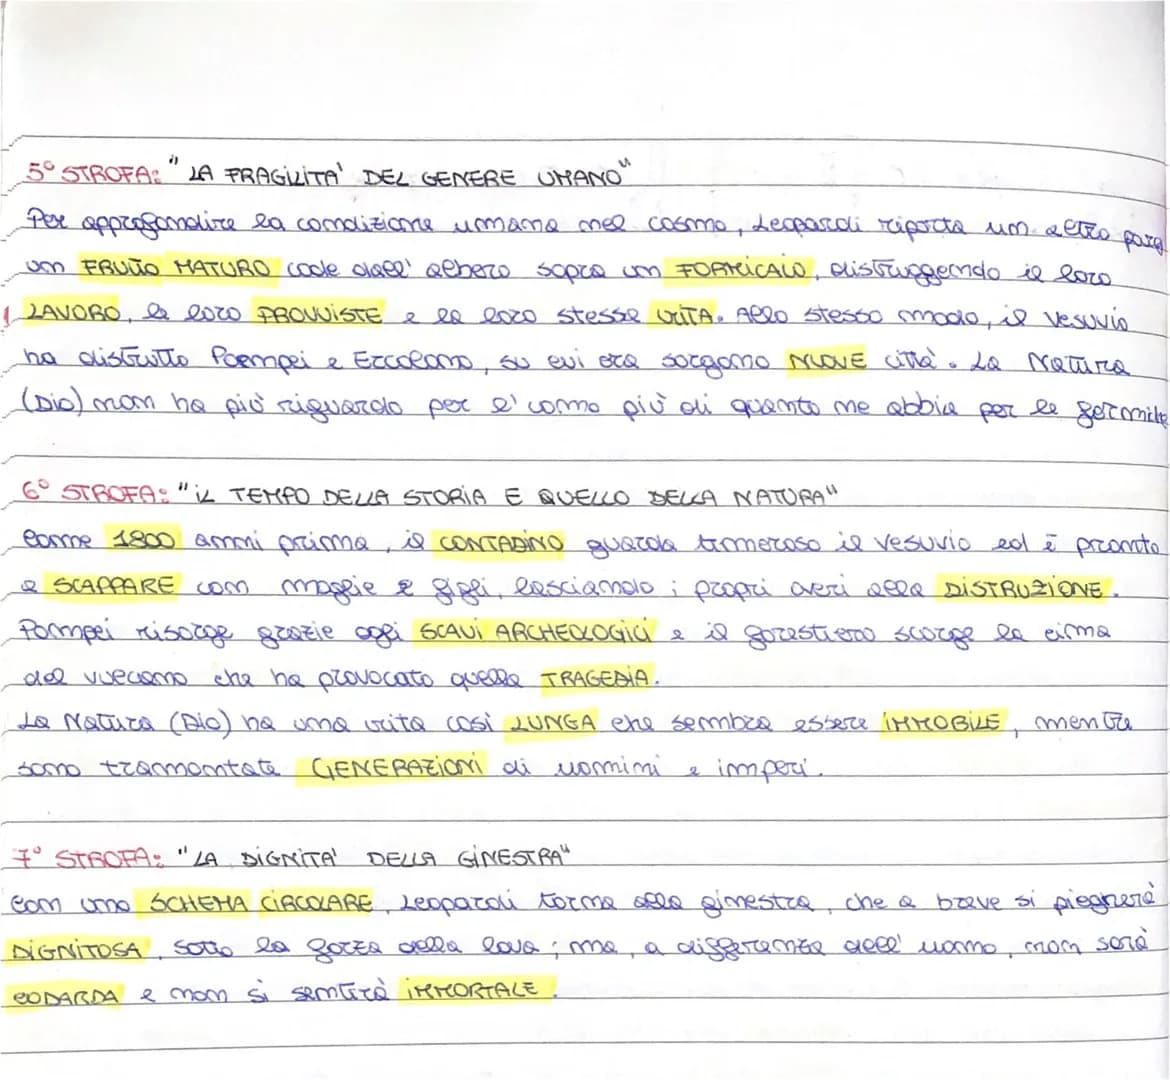 5° STROFA: "LA FRAGILITA' DEL GENERE UMANO"
Per approfondire la condizione umana nel cosmo, Leopardi riporta un altro parag
un FRUTTO MATURO cade dall' albero sopra un FORMICAIO, distruggendo il loro
LAVORO, le loro PROVVISTE e la loro stessa VITA. Allo stesso modo, il Vesuvio
ha distrutto Poempei e Ercolano, su cui ora sorgono NUOVE città. La Natura
(Dio) non ha più riguardo per l'uomo più di quanto ne abbia per le formiche
6° STROFA: "IL TEMPO DELLA STORIA E QUELLO DELLA NATURA"
Come 1800 anni prima, il CONTADINO guarda timeroso il Vesuvio ed è pronto
a SCAPPARE con moglie e figli, lasciando i propri averi alla DISTRUZIONE.
Pompei risorge grazie agli SCAVI ARCHEOLOGICI e il forestiero scorge la cima
del vuecano che ha provocato quella TRAGEDIA.
La Natura (Dio) ha una vita così LUNGA che sembra essere IMMOBILE, mentre
sono tramontate GENERAZIONI di uomini e imperi.
7° STROFA: "LA DIGNITA' DELLA GINESTRA"
Con uno SCHEMA CIRCOLARE, Leopardi torna alla ginestra, che a breve si piegherà
DIGNITOSA, sotto la forza della lava; ma, a differenza dell' uomo, non sarà
CODARDA e non si sentirà IMMORTALE.